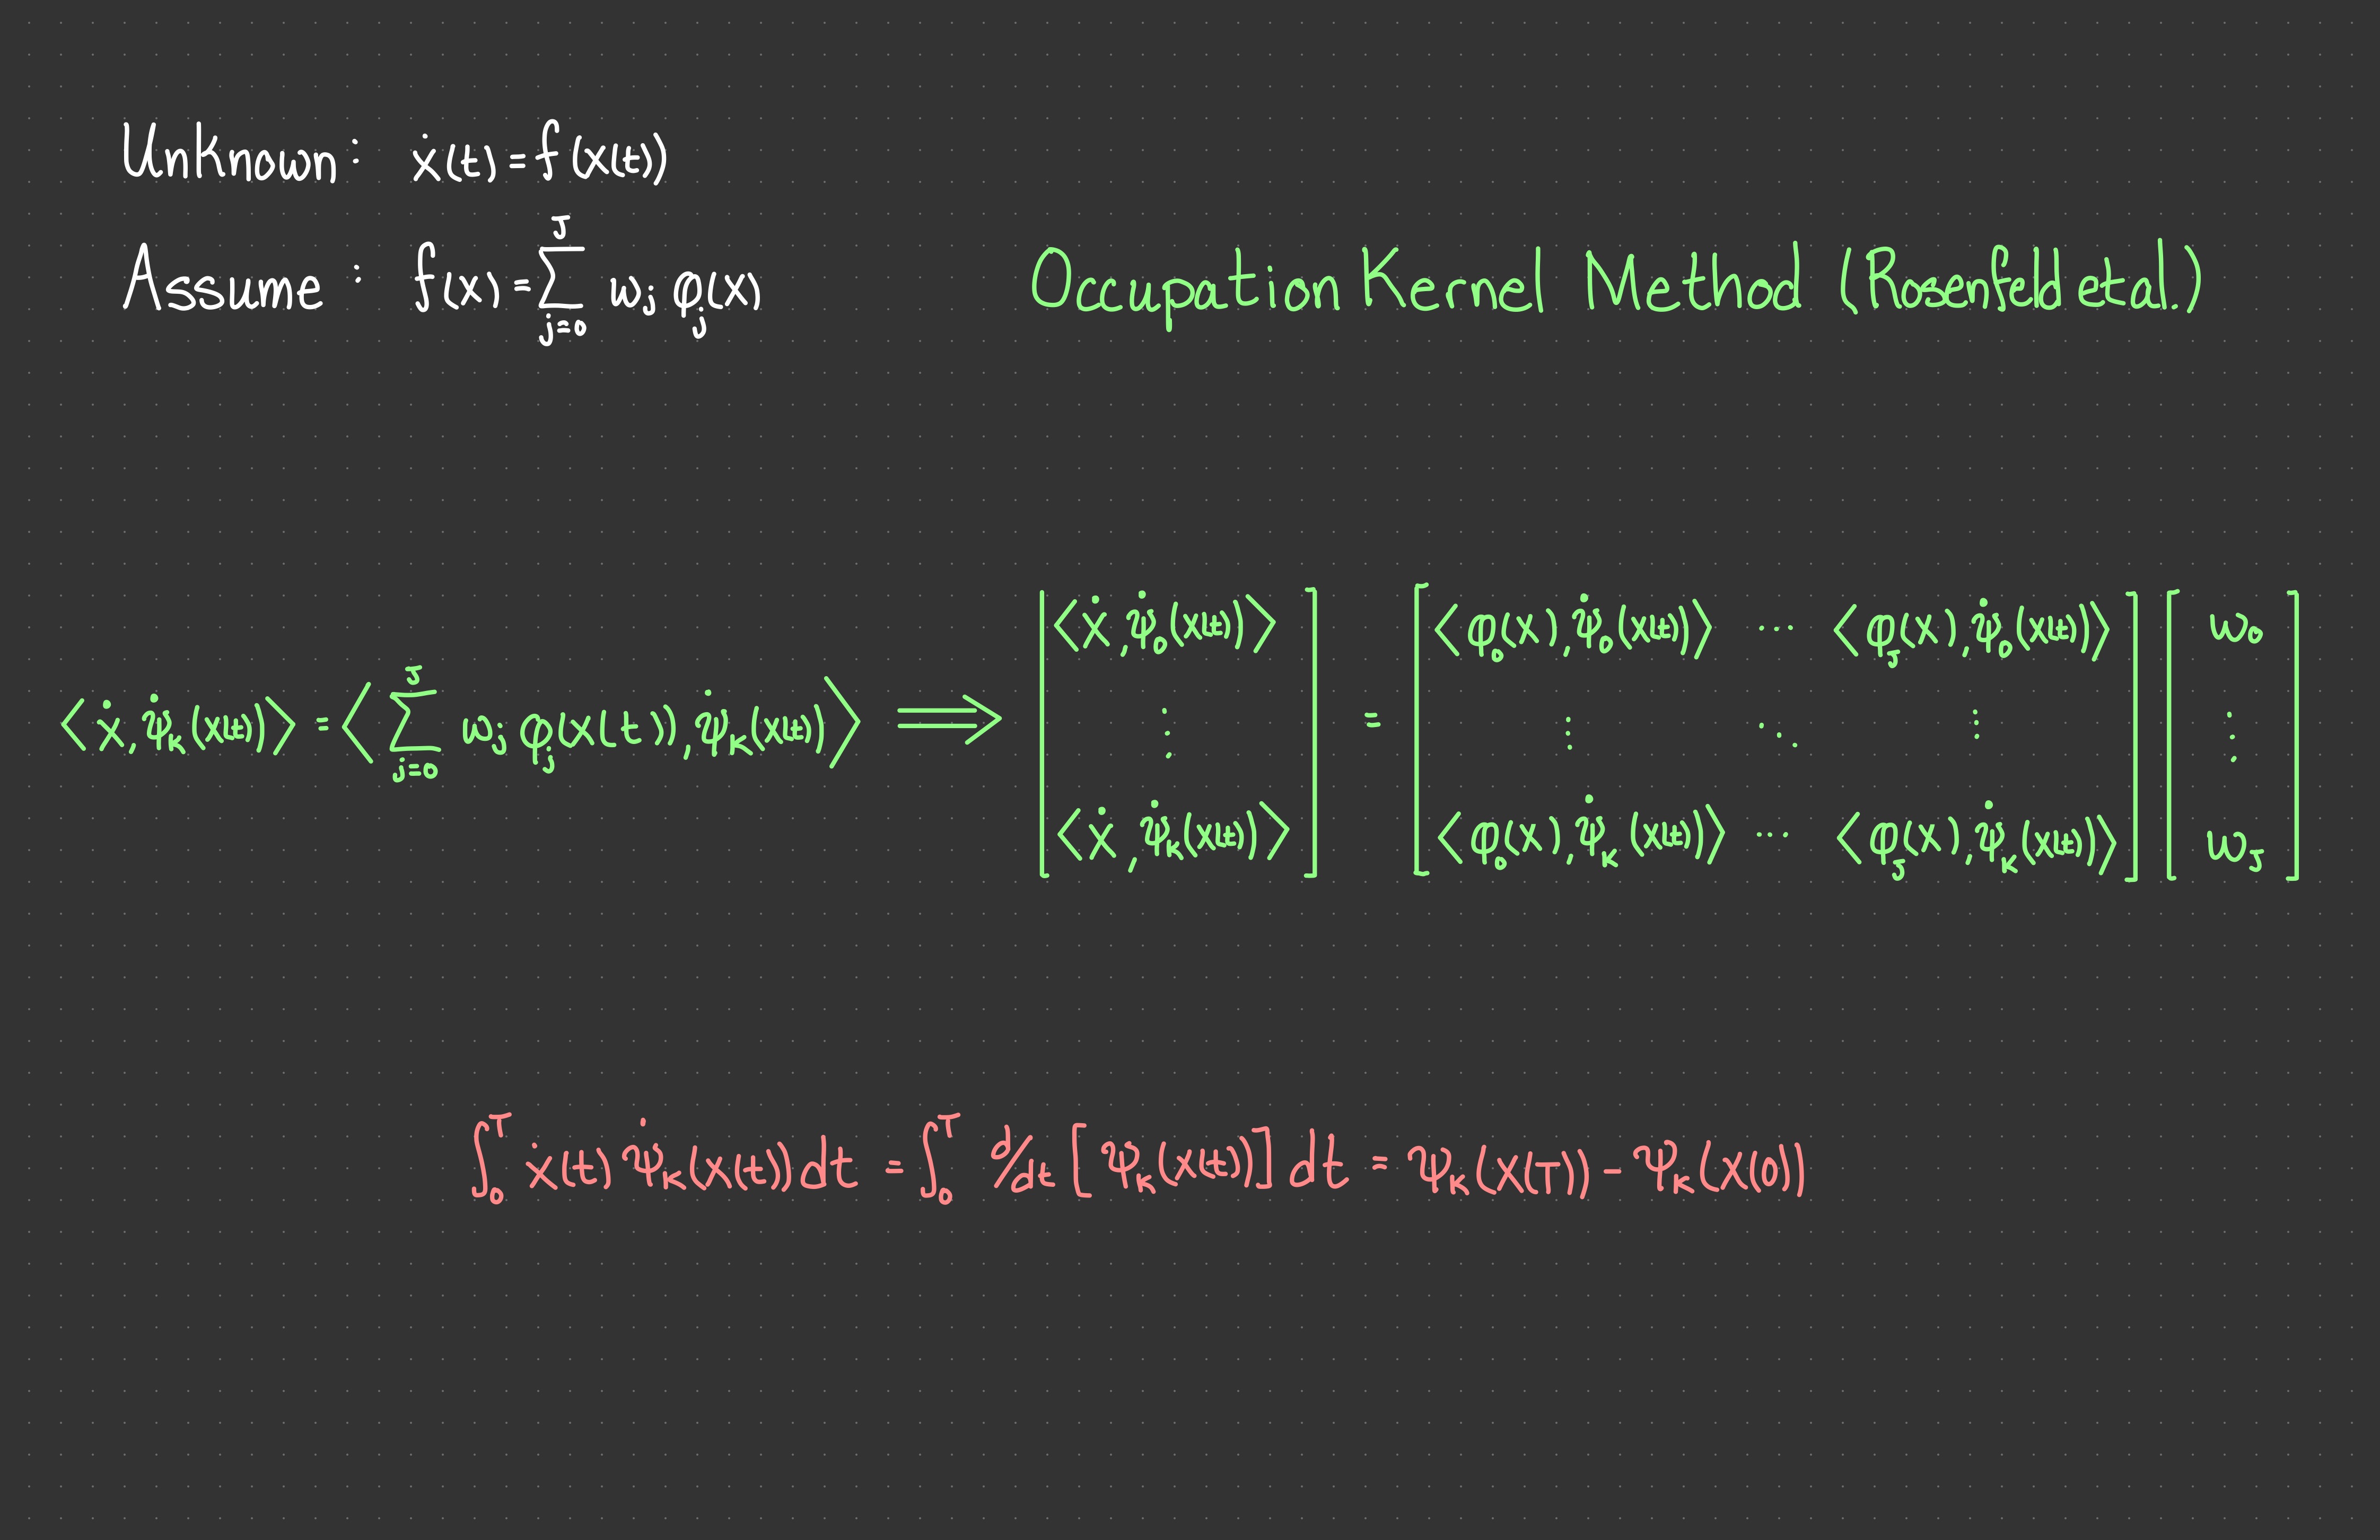 Unknown: ẋ(t) = f(x(t))
Assume: f(x) = ∑_{j=0}^{J} w_j φ_j(x)
Occupation Kernel Method (Rosenfeld et al.)
⟨ẋ, ψ̇_k(x(t))⟩ = ⟨∑_{j=0}^{J} w_j φ_j(x(t)), ψ̇_k(x(t))⟩ ⟹ [⟨ẋ, ψ̇_0(x(t))⟩ ⋮ ⟨ẋ, ψ̇_K(x(t))⟩] = [⟨φ_0(x), ψ̇_0(x(t))⟩ ⋯ ⟨φ_J(x), ψ̇_0(x(t))⟩ ⋮ ⋱ ⋮ ⟨φ_0(x), ψ̇_K(x(t))⟩ ⋯ ⟨φ_J(x), ψ̇_K(x(t))⟩] [w_0 ⋮ w_J]
∫_0^T ẋ(t) ψ̇_k(x(t)) dt = ∫_0^T d/dt [ψ_k(x(t))] dt = ψ_k(x(T)) - ψ_k(x(0))